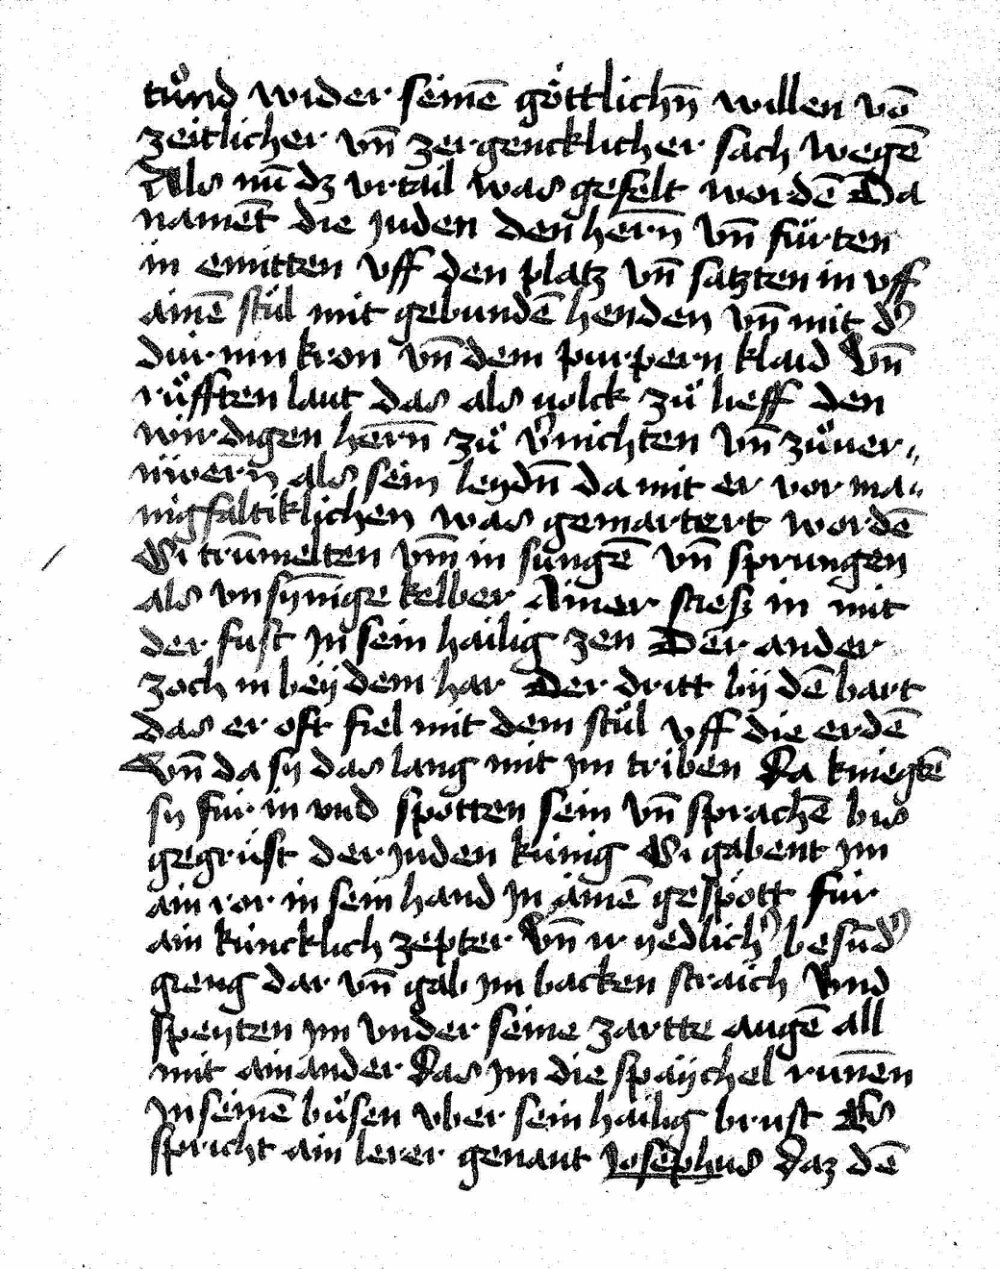 tuͦnd wider seinē göttlichn̄ willen vō
zeitlicher vn̄ zergencklicher sach wegē
Als nū dz vrtail was gefelt wordē Da
namēt die juden den hern̄ vn̄ fürten
in enmitten vff den platz vn̄ satzten in vff
ainē stuͦl mit gebundē henden vn̄ mit d’
durnin kron vn̄ dem purpern klaid Vn̄
ruͦfften laut das als uolck zuͦ lieff den
wirdigen hern̄ zuͦ v’nichten vn̄ zuͦ uer„
nüwern̄ als sein leydn̄ da mit er vor ma„
nigfaltiklichen was gemartert wordē
Si trūmelten vm̄ in sungē vn̄ sprungen
als vnsyn̄ige kelber Ainer sties in mit
der fust jn sein hailig zen Der ander
zoch in beÿ dem har Der dritt bÿ dē bart
das er oft fiel mit dem stuͦl vff die erdē
Vn̄ da sÿ das lang mit jm triben Da kniegtē
sÿ für in vnd spotten sein vn̄ sprachē bis
gegrüst der juden künig Si gabent jm
ain ror in sein hand jn ainē gespött für
ain küncklich zepter Vn̄ ir yedlich’ besūd’
gieng dar vn̄ gab jm backen straich Vnd
speyten jm vnder seine zartte augē all
mit ainander Das jm die spaÿchel run̄en
jn seinē buͦsen vber sein hailig brust Es
spricht ain lerer genant Josephus Daz dē